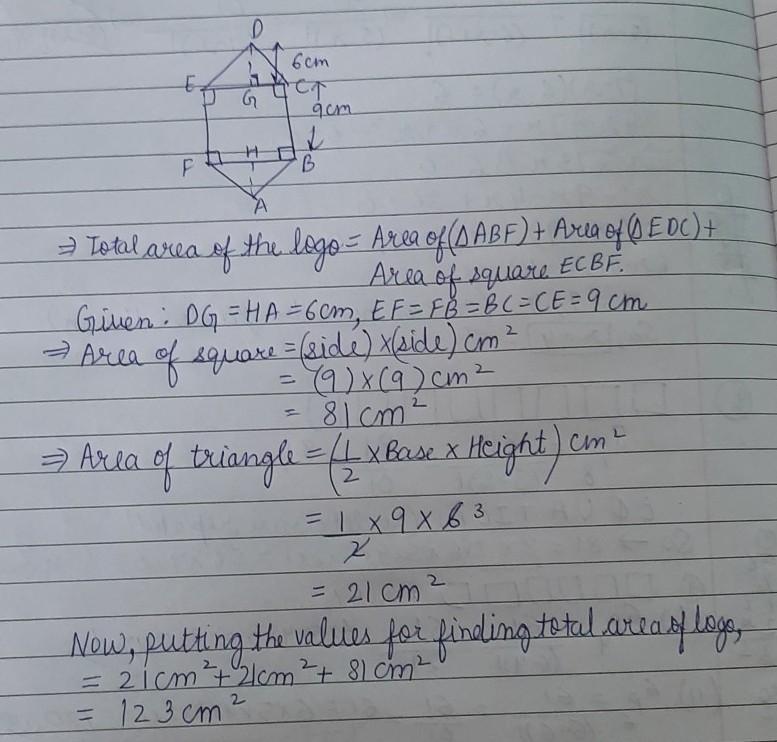 D
6cm
E G C
9cm
F H B
A
⇒ Total area of the logo = Area of (△ABF) + Area of (△EDC) +
Area of square ECBF.
Given: DG = HA = 6cm, EF = FB = BC = CE = 9 cm
⇒ Area of square = (side) × (side) cm²
= (9) × (9) cm²
= 81 cm²
⇒ Area of triangle = (1/2 × Base × Height) cm²
= 1/2 × 9 × 6 3
= 21 cm²
Now, putting the values for finding total area of logo,
= 21cm² + 21cm² + 81 cm²
= 123 cm²